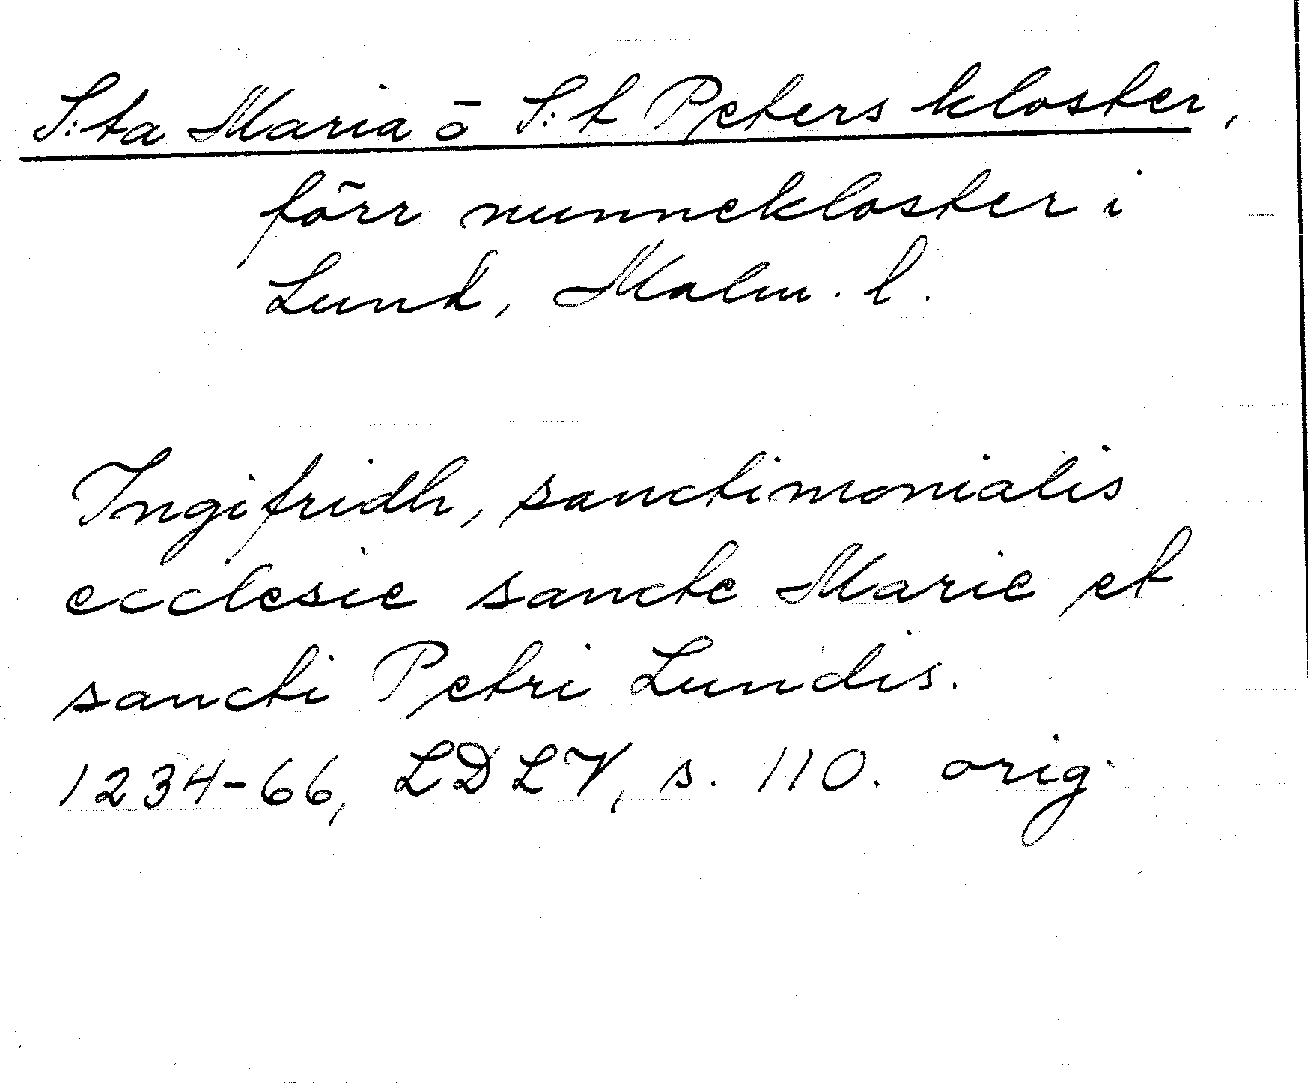 S:ta Maria o S:t Peters kloster,
förr nunnekloster i
Lund, Malm. l.
Ingifridh, sanctimonialis
ecclesie sancte Marie et
sancti Petri Lundis.
1234-66, LDLV, s. 110. orig.